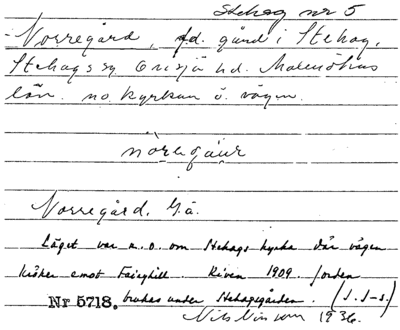 Stehag nr 5
Norregård, fd. gård i Stehag,
Stehags sn Onsjö hd. Malmöhus
län. no kyrkan ö. vägen.
nöregåur
Norregård. Gä.
Läget var n.o. om Stehags kyrka där vägen
kröker emot Fairyhill. Riven 1909. Jorden
Nr 5718. brukas under Stehagsgården. (J. J-s.)
Nils Nilsson 1936.